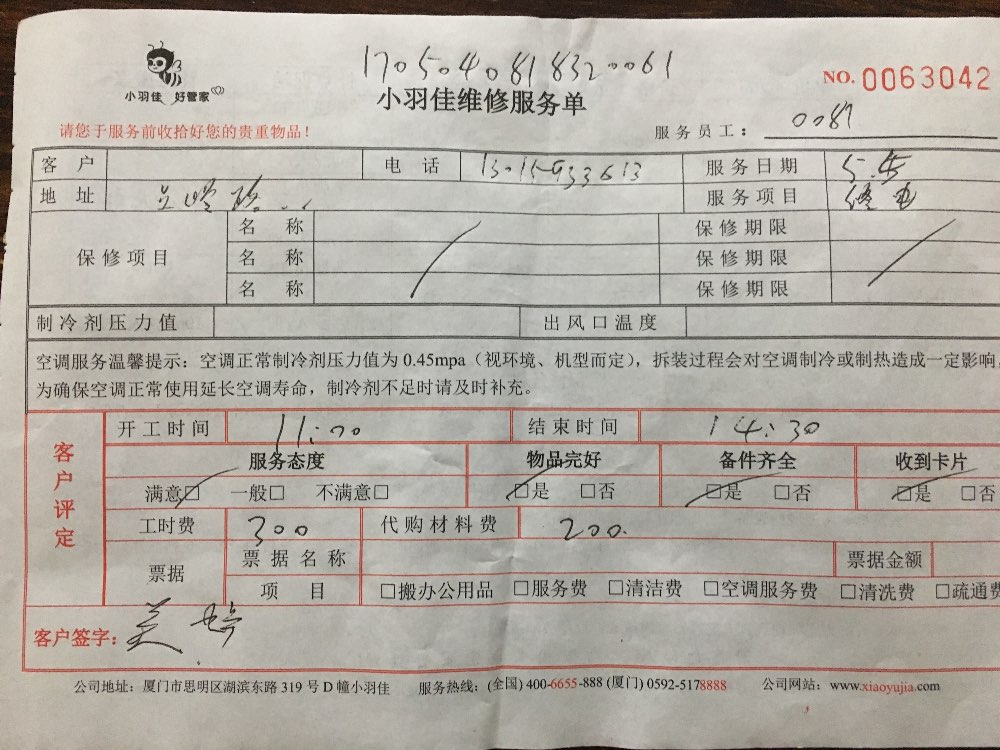 1705040818320061
小羽佳 好管家
小羽佳维修服务单
NO. 0063042
请您于服务前收拾好您的贵重物品！
服务员工： 0087
客户 电话 13015933613 服务日期 5.5
地址 服务项目 修电
保修项目 名称 保修期限
名称 保修期限
名称 保修期限
制冷剂压力值 出风口温度
空调服务温馨提示：空调正常制冷剂压力值为 0.45mpa（视环境、机型而定），拆装过程会对空调制冷或制热造成一定影响，
为确保空调正常使用延长空调寿命，制冷剂不足时请及时补充。
客户评定
开工时间 11:00 结束时间 14:30
服务态度 物品完好 备件齐全 收到卡片
满意□ 一般□ 不满意□ □是 □否 □是 □否 □是 □否
工时费 300 代购材料费 200.
票据 票据名称 票据金额
项目 □搬办公用品 □服务费 □清洁费 □空调服务费 □清洗费 □疏通费
客户签字：
公司地址：厦门市思明区湖滨东路 319 号 D 幢小羽佳 服务热线：(全国) 400-6655-888 (厦门) 0592-5178888 公司网站：www.xiaoyujia.com